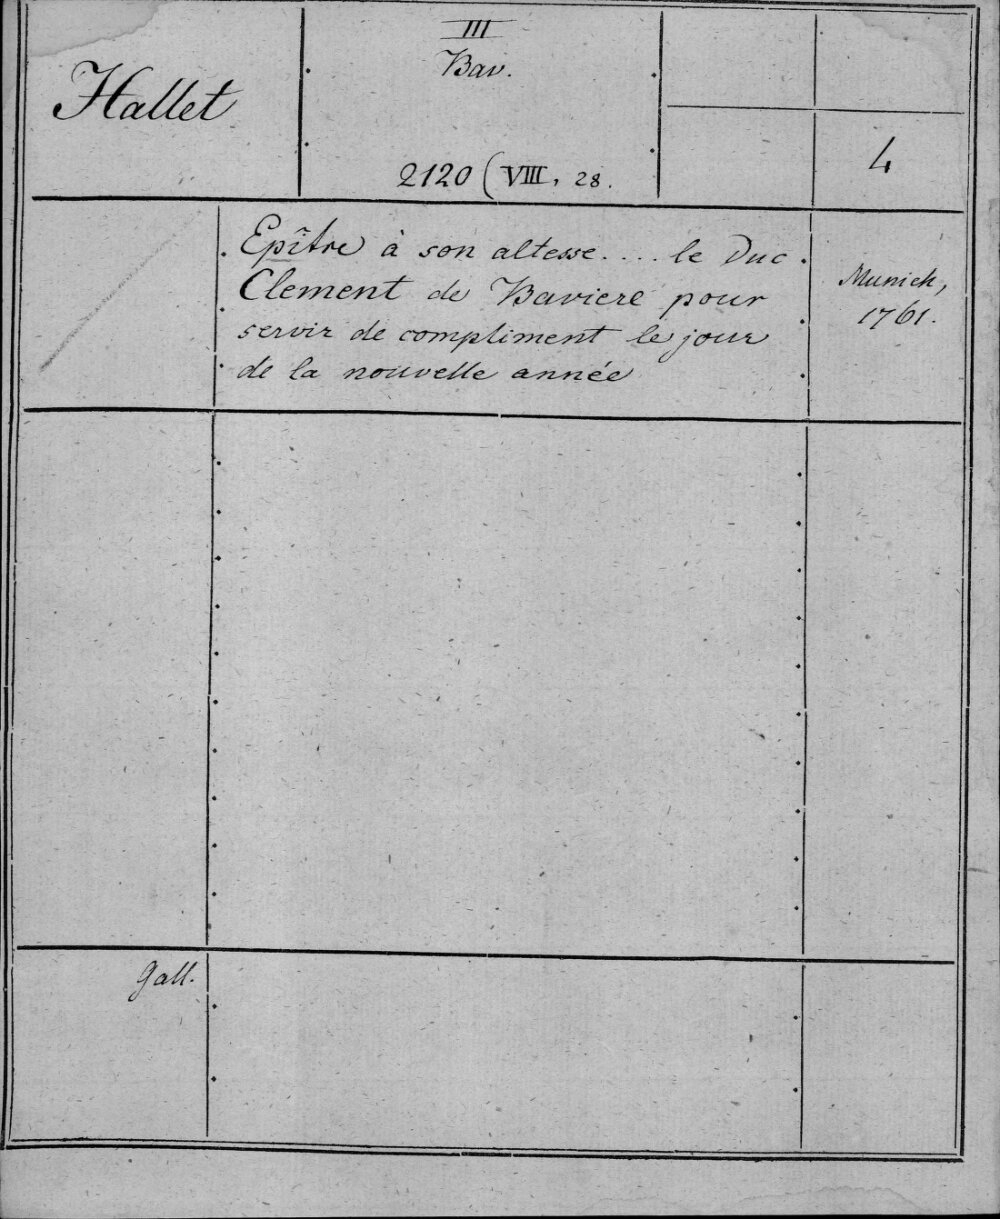 Hallet
III
Bav.
2120 (VIII, 28.
4
Epître à son altesse.... le Duc
Clement de Baviere pour
servir de compliment le jour
de la nouvelle année
Munich,
1761.
Gall.